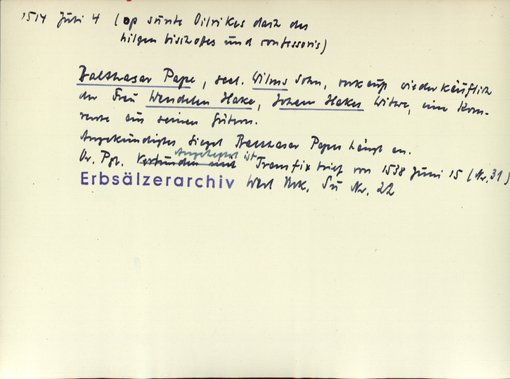 1514 Juli 4 (op sünte Oilrikes dach des
hilgen bischopes und confessoris)
Balthasar Pape, seel. Wilms Sohn, verkauft wiederkäuflich
der Frau Wendelen Hake, Johan Hakes Witwe, eine Korn-
rente aus seinen Gütern.
Angekündigtes Siegel Balthasar Papes hängt an.
Or. Pgt. Angeheftet ist Transfixbrief von 1538 Juni 15 (Nr. 31)
Erbsälzerarchiv Werl Urk. Nr. 22